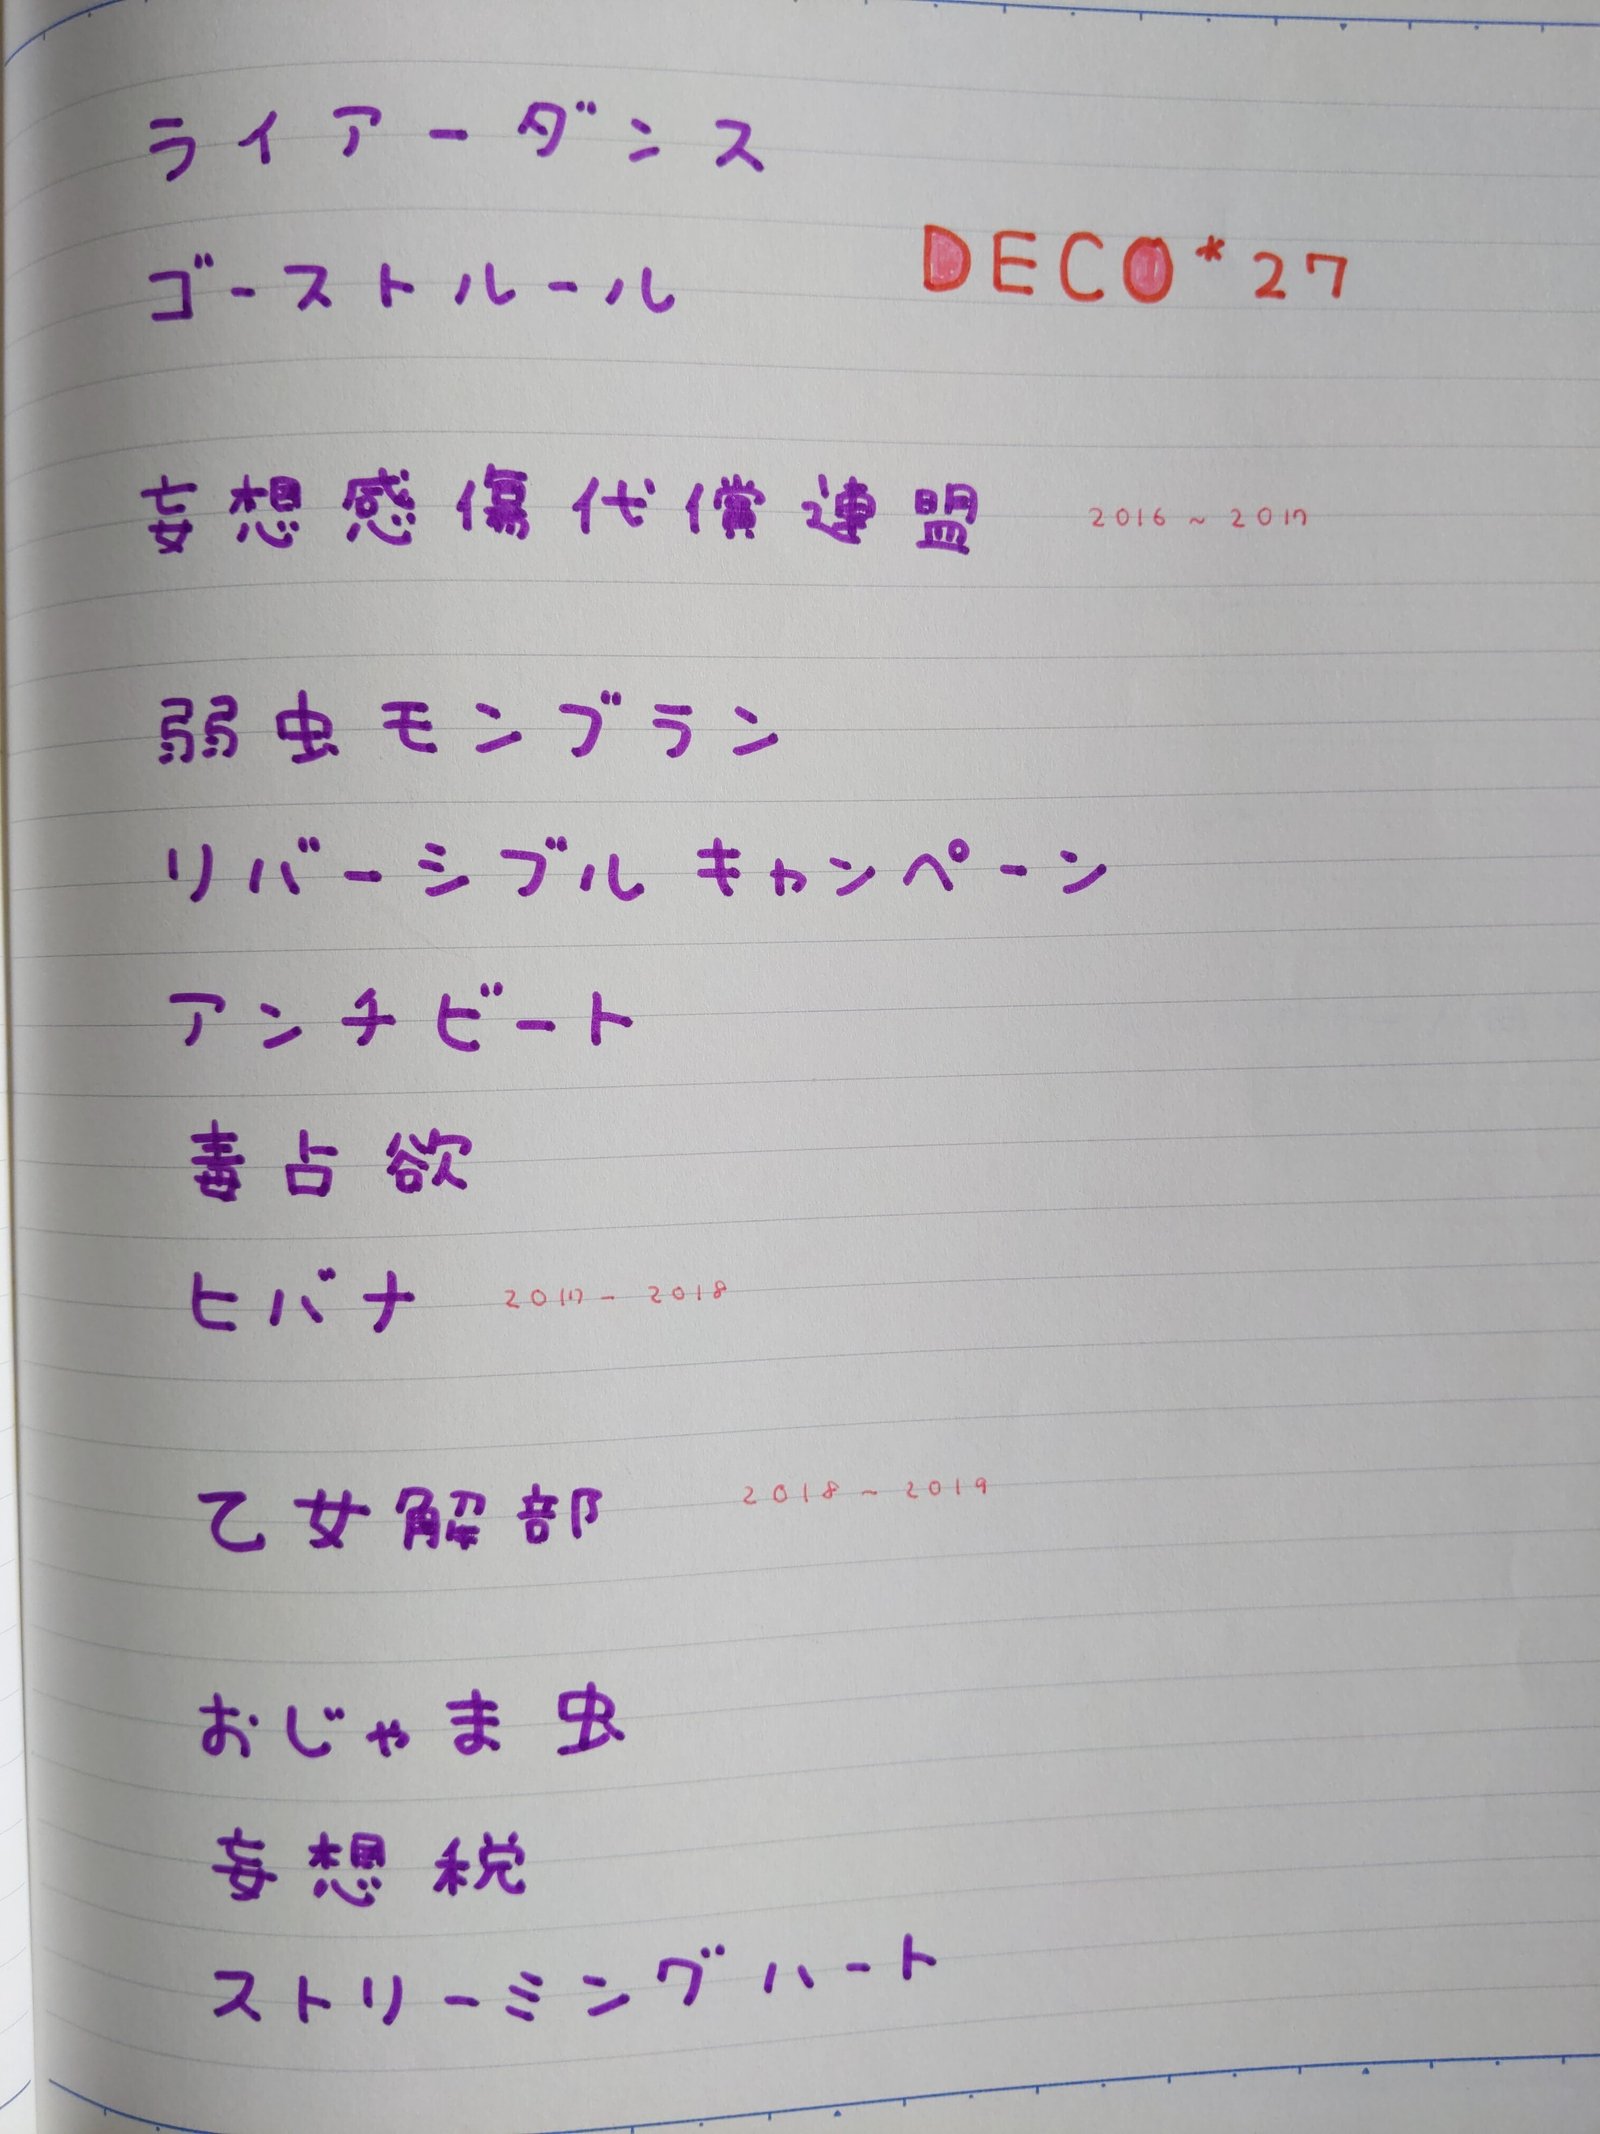 ライアーダンス
DECO*27
ゴーストルール
妄想感傷代償連盟 2016～2017
弱虫モンブラン
リバーシブルキャンペーン
アンチビート
毒占欲
ヒバナ 2017-2018
乙女解部 2018～2019
おじゃま虫
妄想税
ストリーミングハート